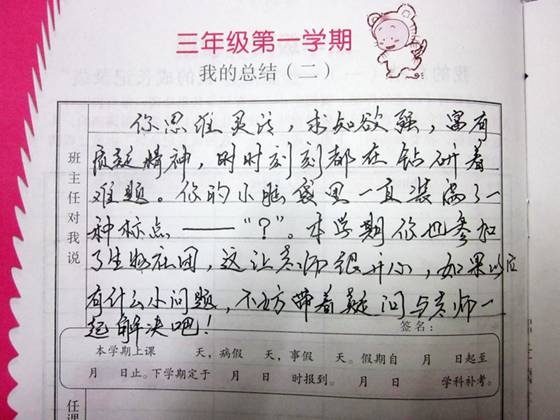 三年级第一学期
我的总结（二）
班主任对我说
你思维灵活，求知欲强，富有
质疑精神，时时刻刻都在钻研着
难题。你的小脑袋里一直装满了一
种标点——“？”。本学期你也参加
了生物社团，这让老师很开心，如果以后
有什么小问题，不妨带着疑问与老师一
起解决吧！
签名：
本学期上课 天，病假 天，事假 天。假期自 月 日起至
月 日止。下学期定于 月 日 时报到。 月 日 学科补考。
任课